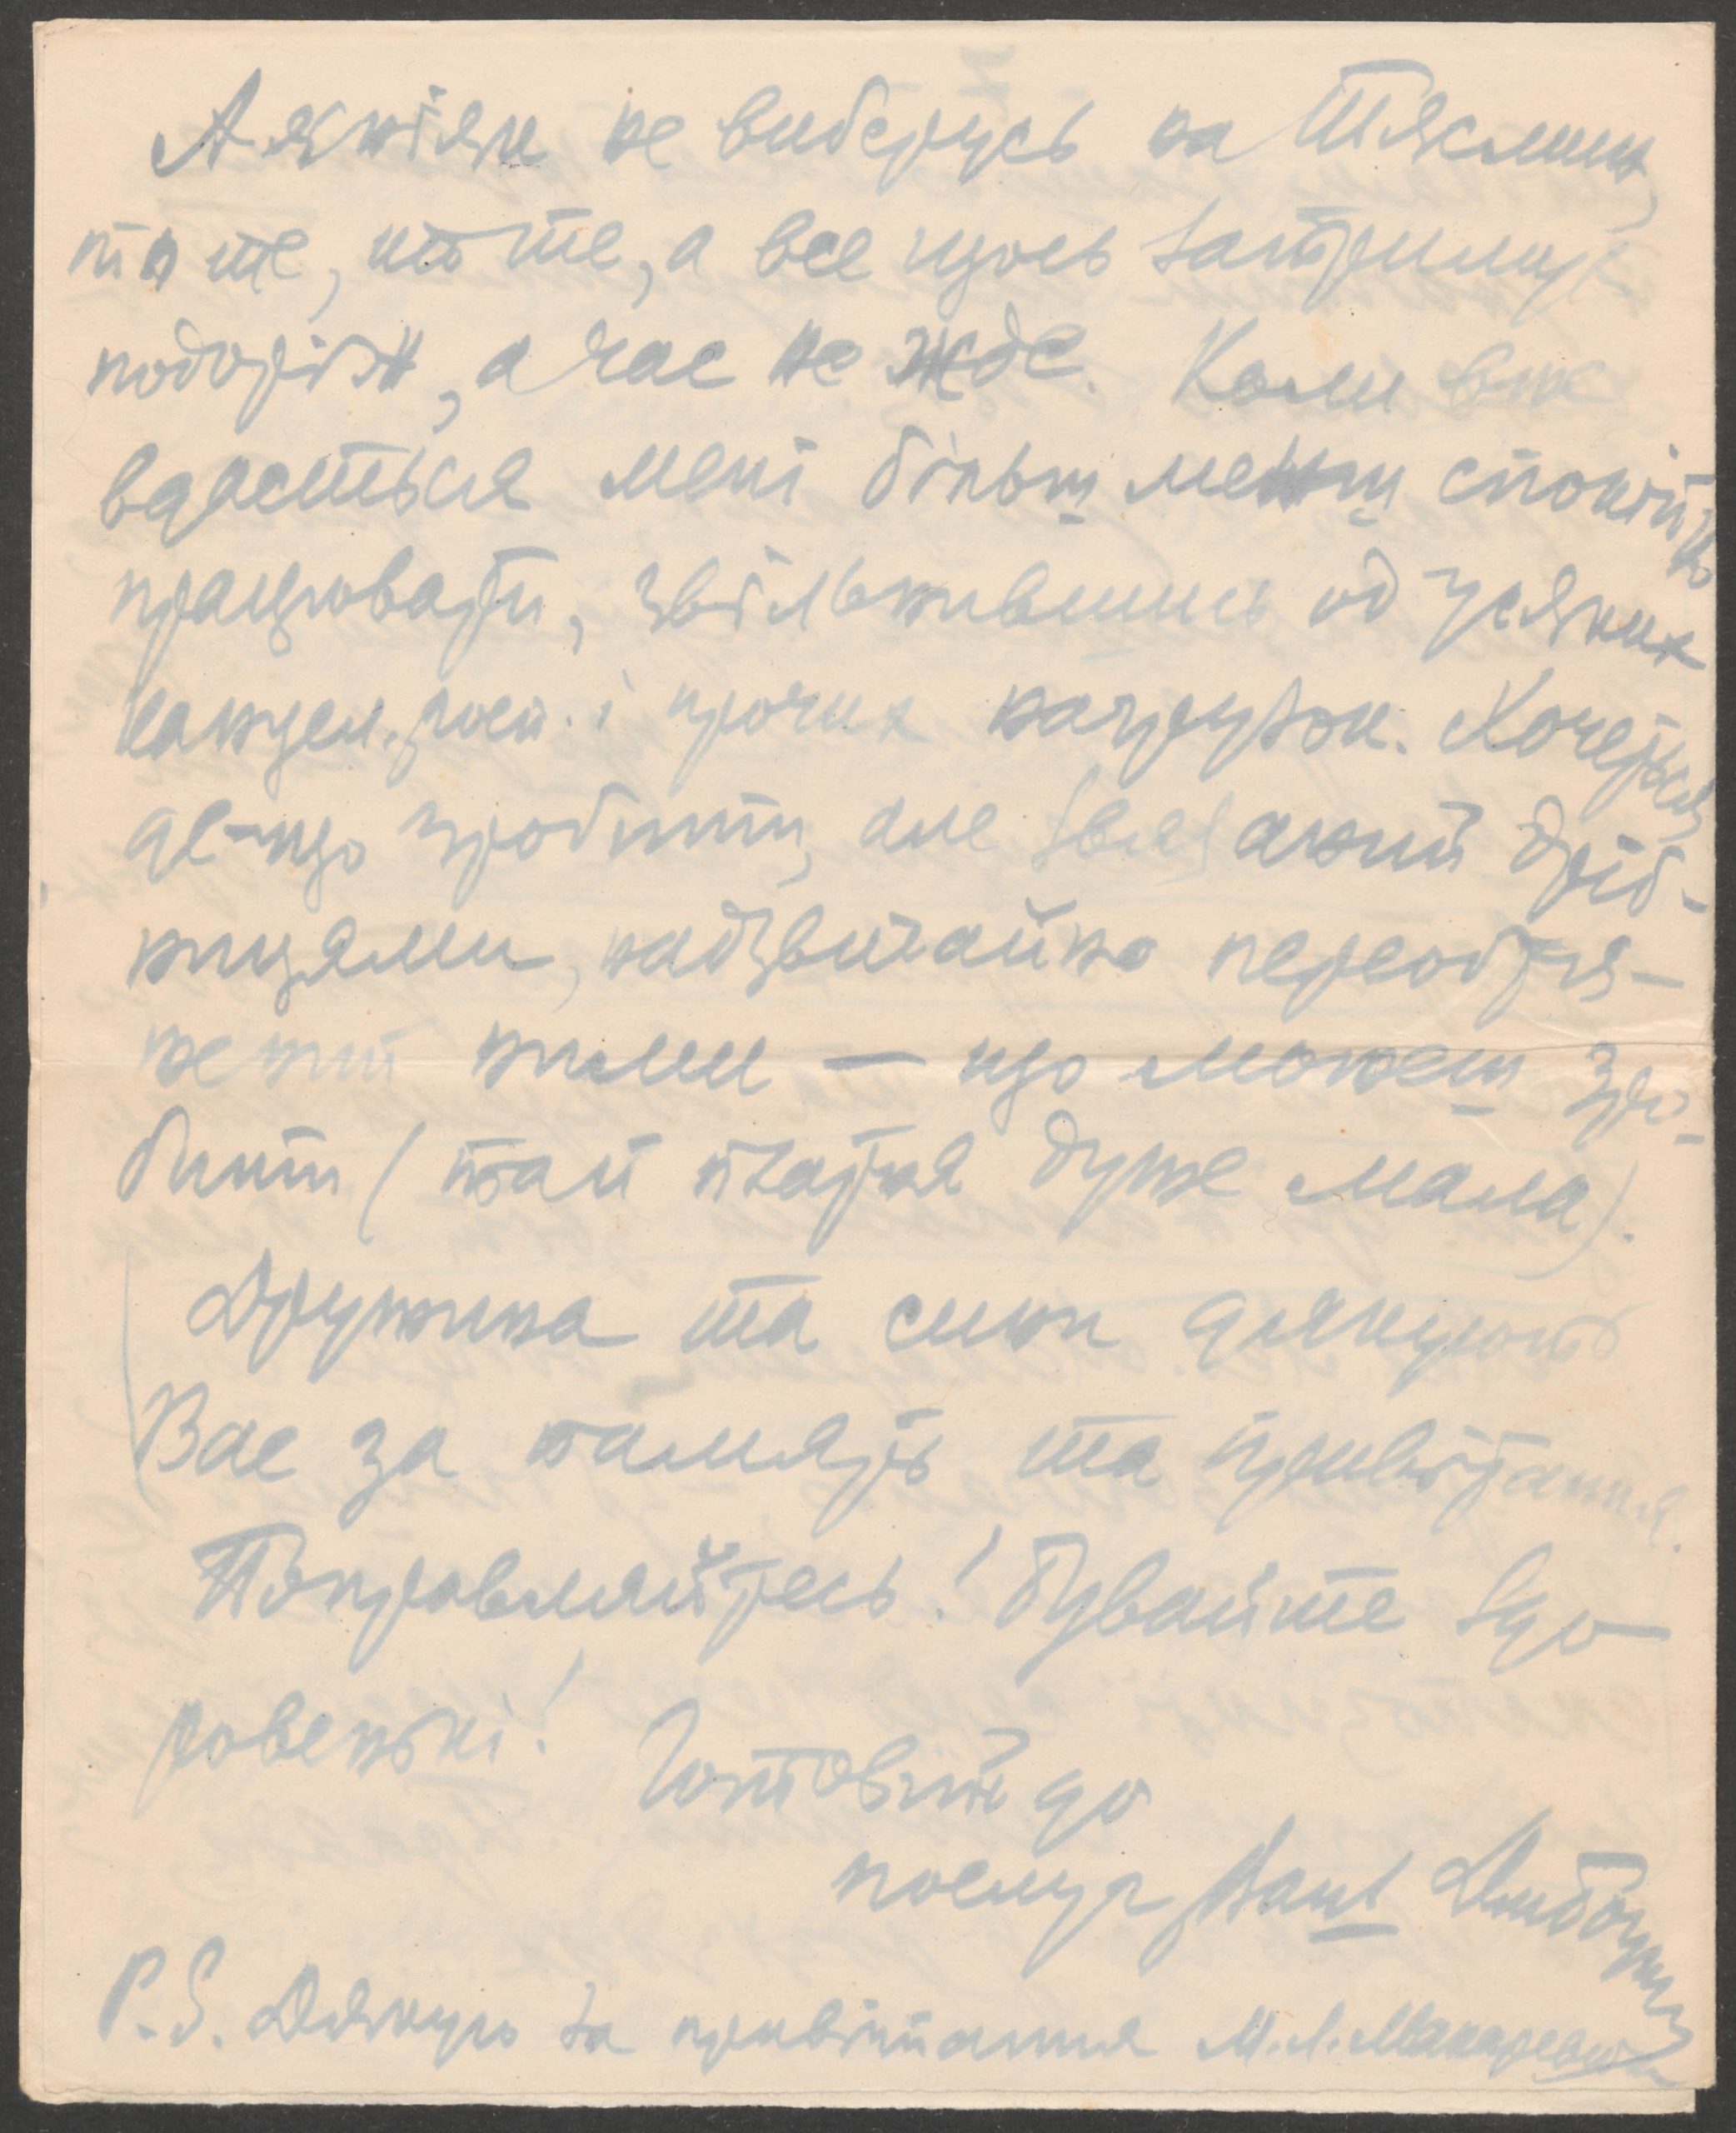 А я ніяк не виберусь на Тясмин,
то те, то те, а все щось затримує
подоріж, а час не жде. Коли вже
вдасться мені більш менш спокійно
працювати, звільнившись од усяких
канцел. і прочих нагрузок. Хочеться
де-що зробити, але звязаний дріб-
ницями, надзвичайно переобтя-
жений ними — що можеш зро-
бити (тай платня дуже мала).
Дружина та сини дякують
Вас за память та привітання.
Поправляйтесь! Бувайте здо-
ровенькі! Готовий до
послуг Ваш
P.S. Дякую за привітання М.Л. Макаревич